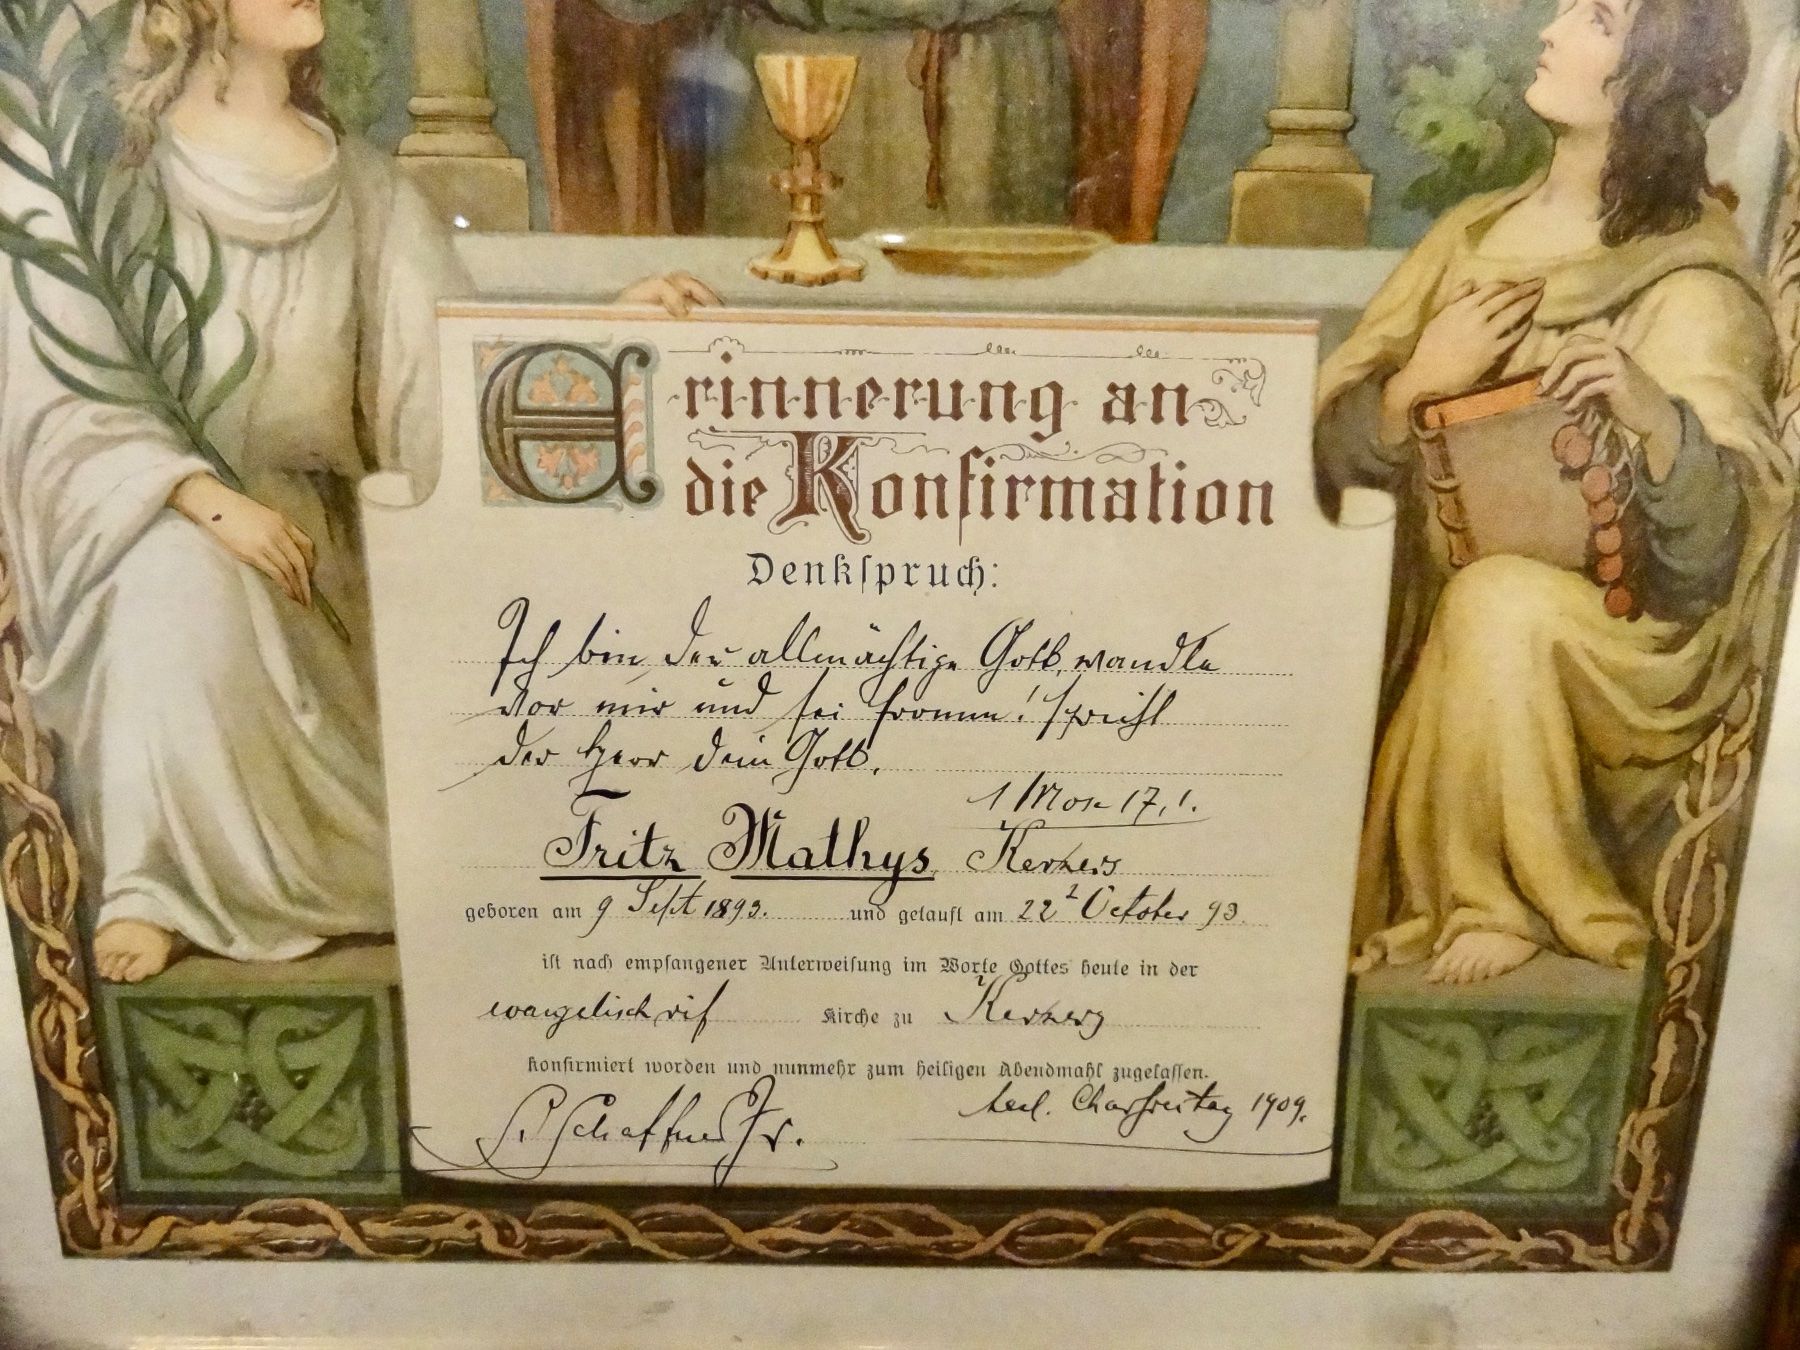 Erinnerung an
die Konfirmation
Denkspruch:
Ich bin der allmächtige Gott, wandle
vor mir und sei fromm! spricht
der Herr dein Gott.
1 Mose 17, 1.
Fritz Mathys, Kerzers
geboren am 9 Sept 1893. und getauft am 22 October 93.
ist nach empfangener Unterweisung im Worte Gottes heute in der
evangelisch ref Kirche zu Kerzers
konfirmiert worden und nunmehr zum heiligen Abendmahl zugelassen.
Schaffner Pfr. Charfreitag 1909.